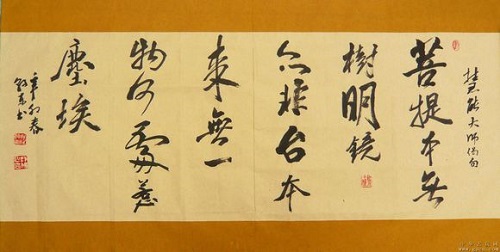 慧能大师偈句
菩提本無
樹明鏡
亦非台本
來無一
物何處惹
塵埃
辛卯春
书